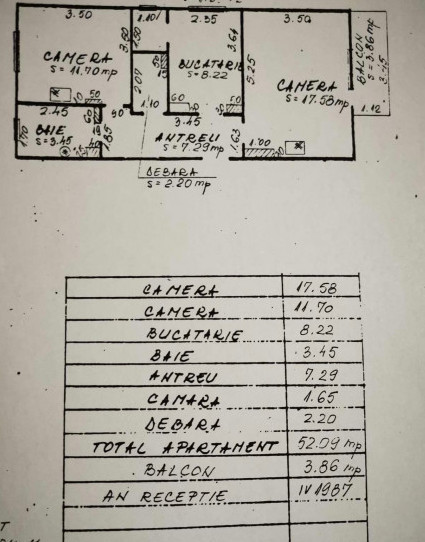 3.50
1.10
2.35
3.50
CAMERA
S = 11.70 mp
3.80
1.50
BUCATARIE
S = 8.22
3.64
5.25
CAMERA
S = 17.58 mp
BALCON
S = 3.86 mp
3.45
1.12
2.07
50
2.45
90
1.10
60
3.45
BAIE
S = 3.45
1.85
1.70
ANTREU
S = 7.29 mp
1.63
1.00
DEBARA
S = 2.20 mp
CAMERA 17.58
CAMERA 11.70
BUCATARIE 8.22
BAIE 3.45
ANTREU 7.29
CAMARA 1.65
DEBARA 2.20
TOTAL APARTAMENT 52.09 mp
BALCON 3.86 mp
AN RECEPTIE IV 1987
T